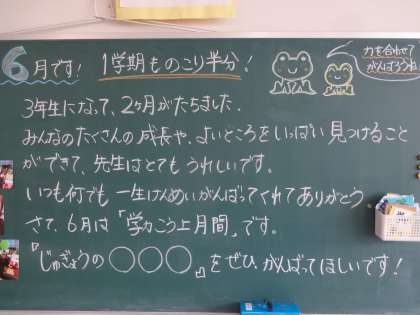 6月です! 1学期ものこり半分!
力を合わせて
がんばろうね
3年生になって、2ヶ月がたちました。
みんなのたくさんの成長や、よいところをいっぱい見つけること
ができて、先生はとてもうれしいです。
いつも何でも一生けんめいがんばってくれてありがとう。
さて、6月は「学力こう上月間」です。
『じゅぎょうの○○○』をぜひがんばってほしいです!